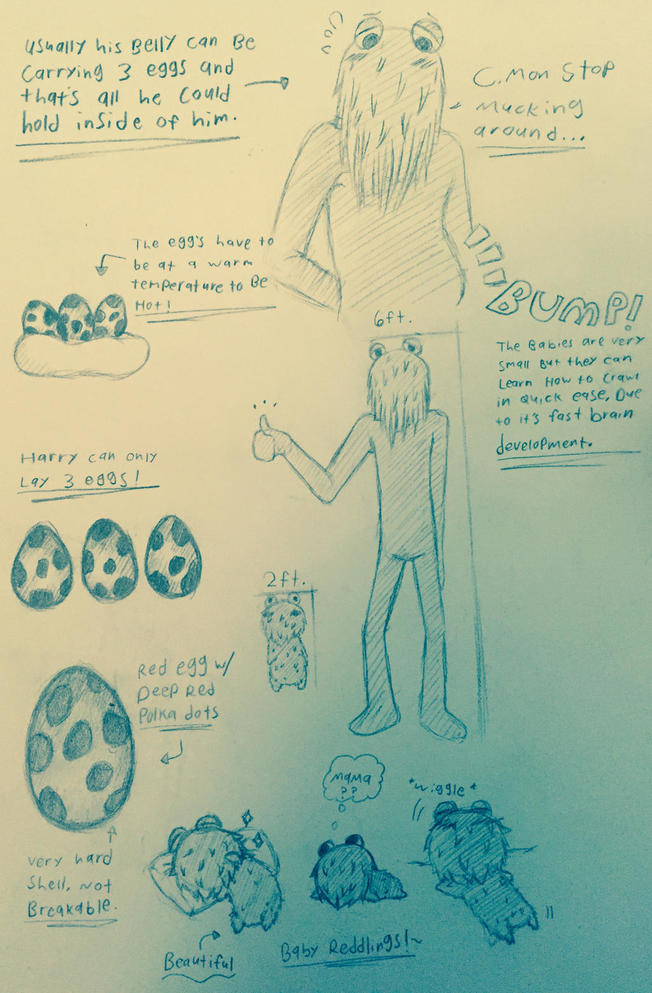 usually his Belly can Be
carrying 3 eggs and
that's all he could
hold inside of him.
C.mon stop
mucking
around...
The egg's have to
be at a warm
temperature to Be
Hot!
BUMP!
6ft.
The Babies are very
small But they can
Learn How to crawl
in quick ease, Due
to it's fast brain
development.
Harry can only
Lay 3 eggs!
2ft.
Red egg w/
Deep Red
Polka dots
very hard
shell, not
Breakable.
mama
??
*wiggle*
Beautiful
Baby Reddlings!~